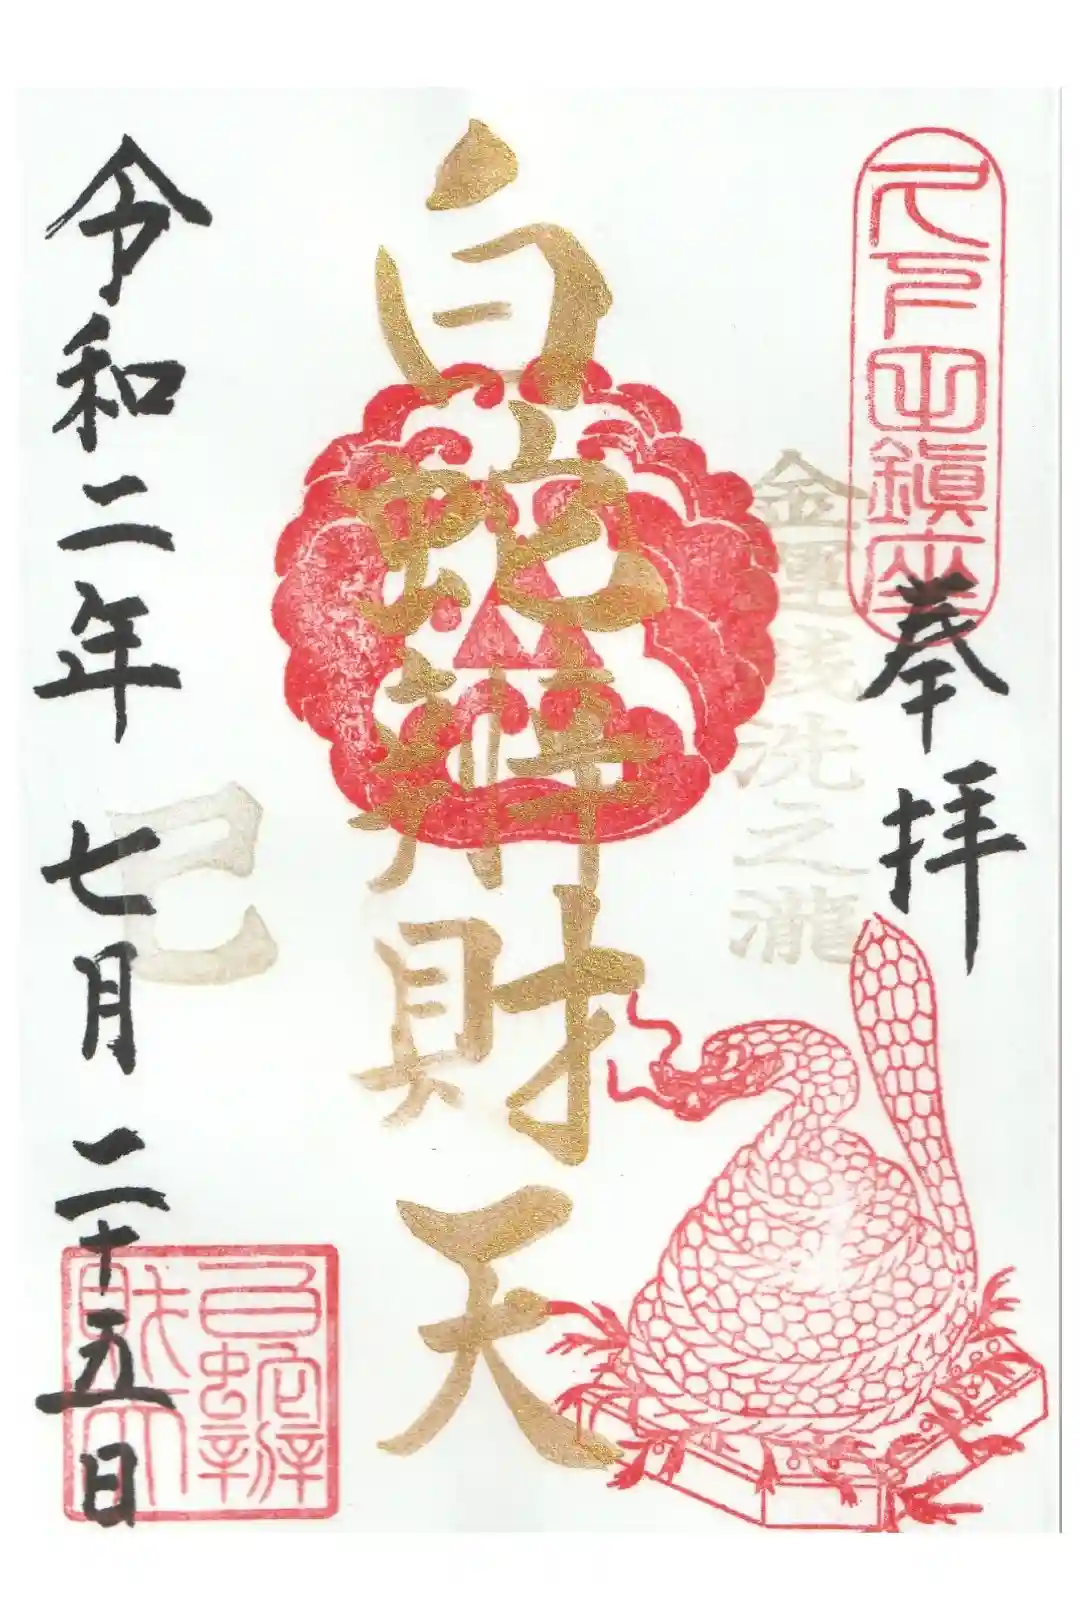 久下田鎮座
奉拝
金運銭洗之瀧
白蛇辨財天
巳
令和二年七月二十五日
白蛇辨
財天